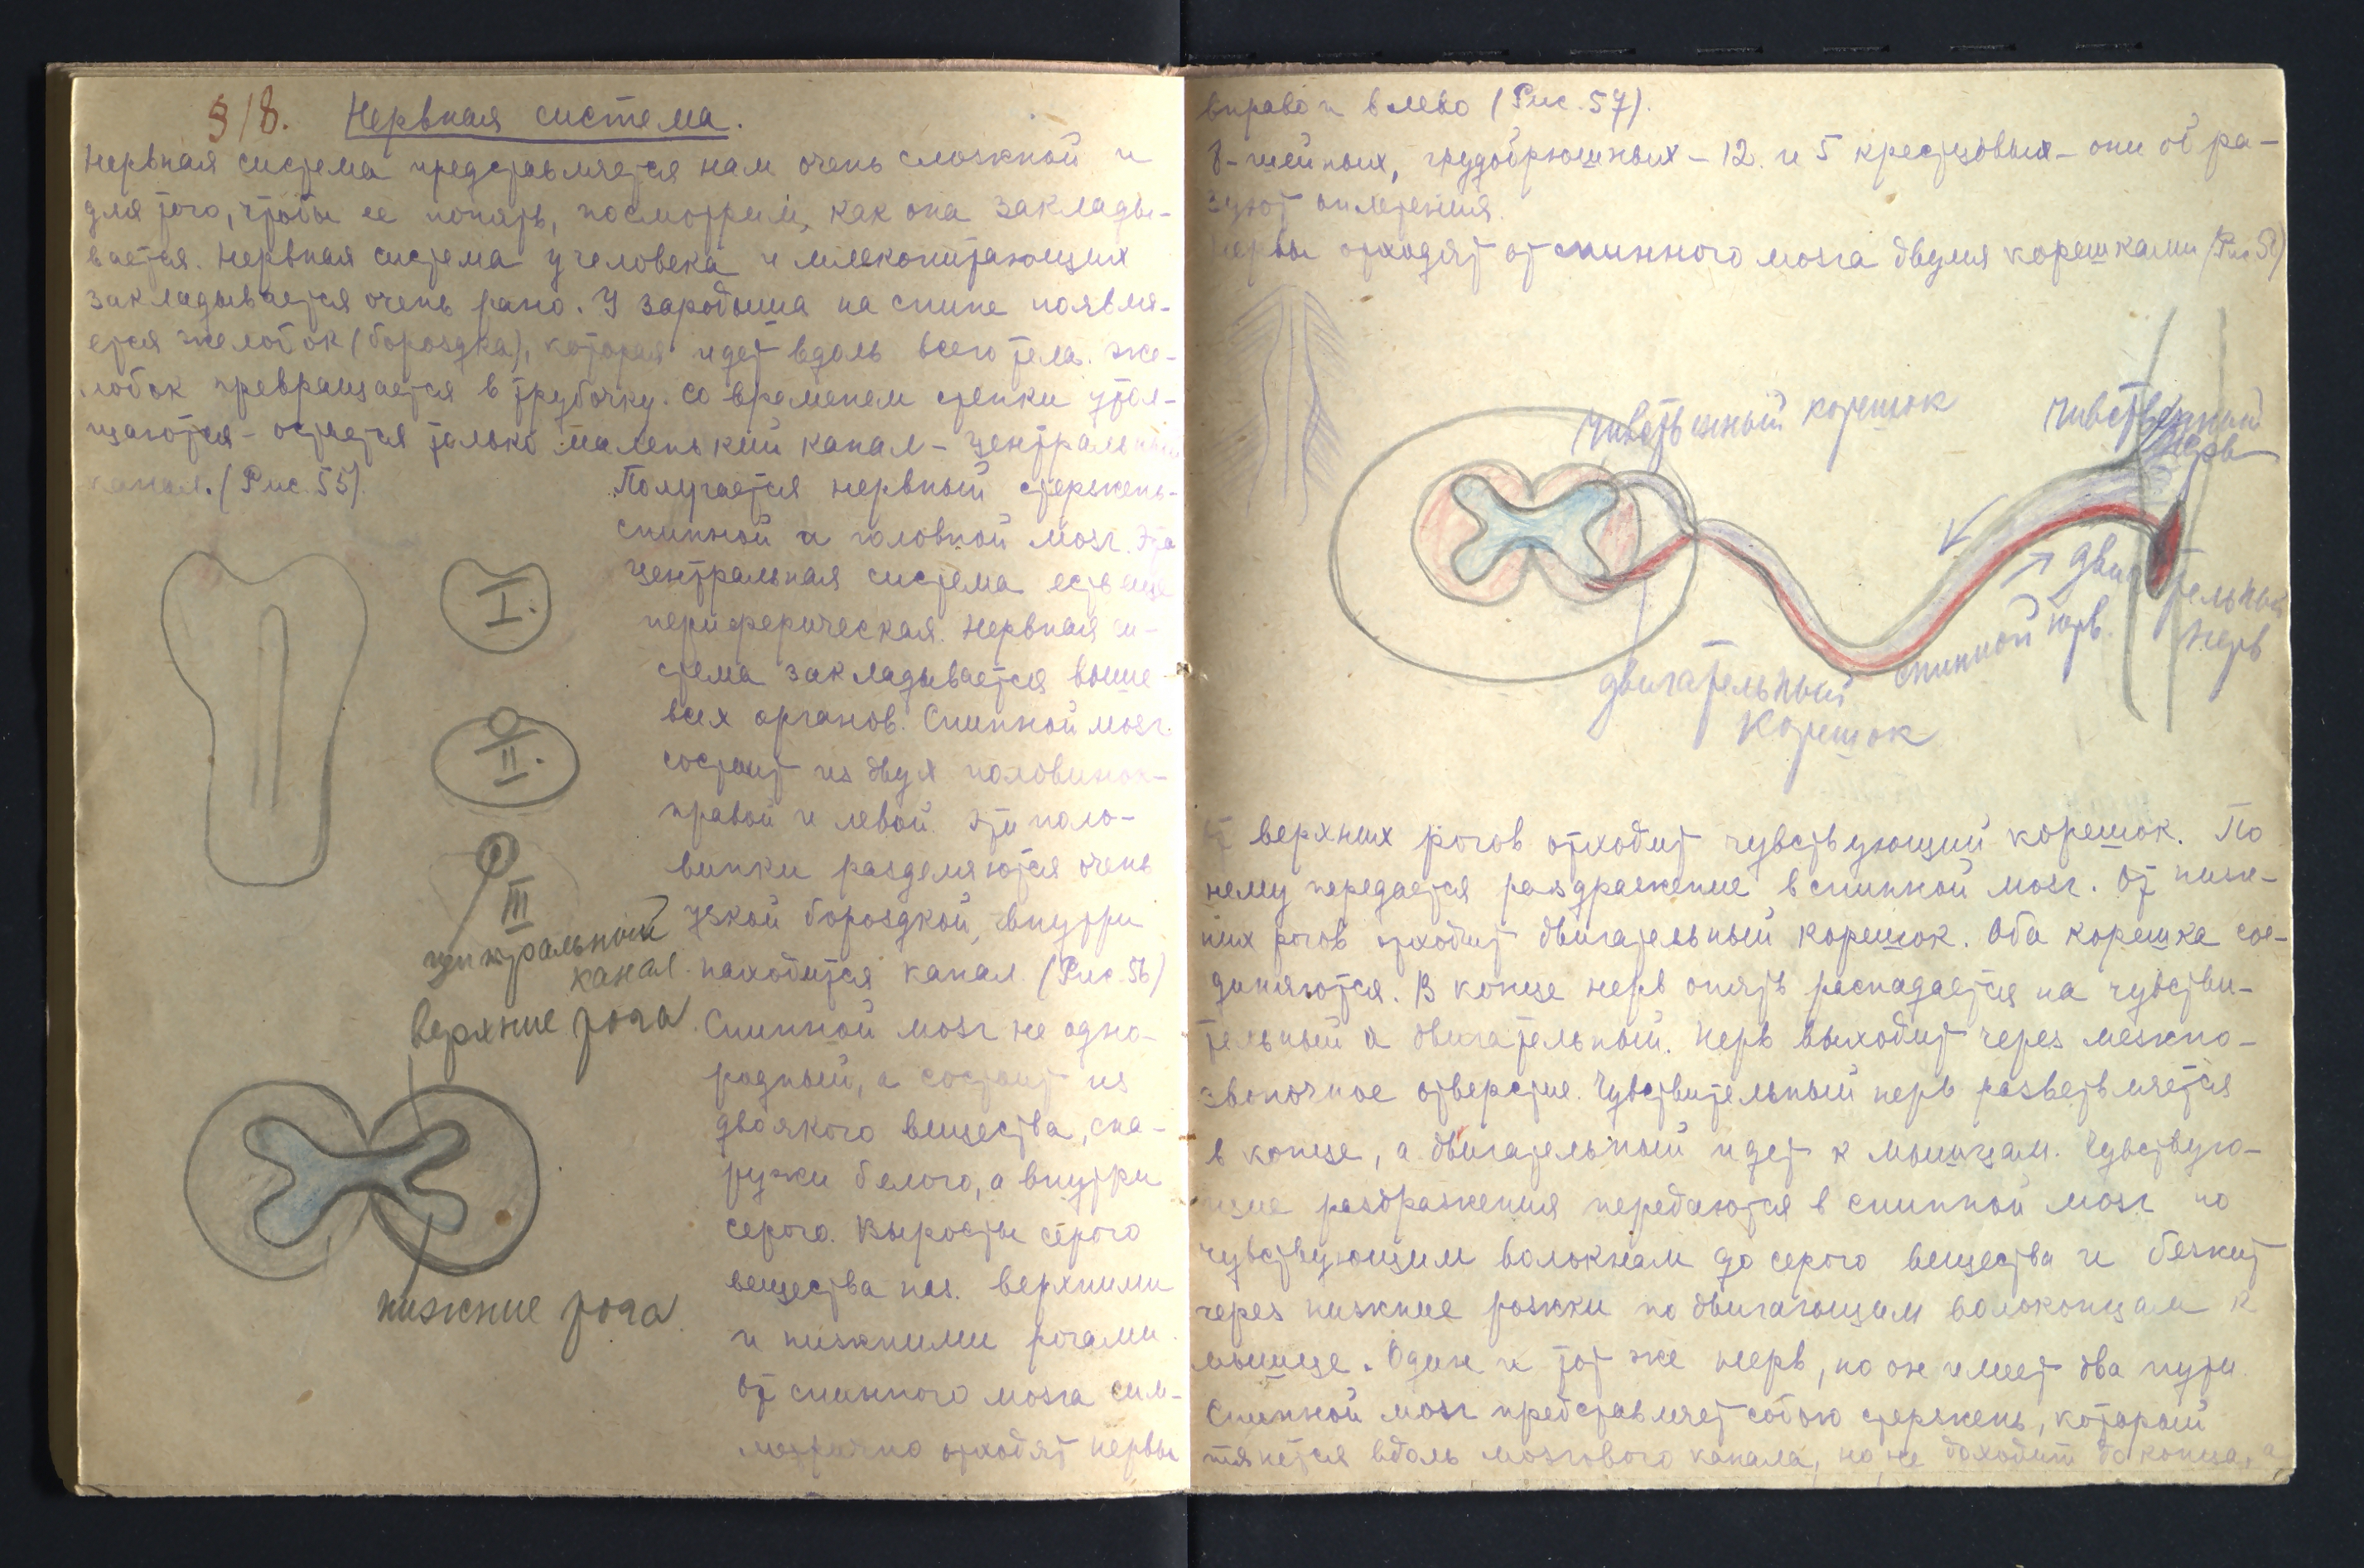 §18. Нервная система.
Нервная система представляется нам очень сложной и
для того, чтобы ее понять, посмотрим, как она заклады-
вается. Нервная система у человека и млекопитающих
закладывается очень рано. У зародыша на спине появля-
ется желобок (бороздка), которая идет вдоль всего тела. Же-
лобок превращается в трубочку. Со временем стенки утол-
щаются - остается только маленький канал - центральный
канал. (Рис. 55).
Получается нервный стержень-
спинной и головной мозг. Эта
центральная система есть еще
периферическая. Нервная си-
стема закладывается выше
всех органов. Спинной мозг
состоит из двух половинок-
правой и левой. Эти поло-
винки разделяются очень
узкой бороздкой, внутри
находится канал. (Рис. 56)
Спинной мозг не одно-
родный, а состоит из
двоякого вещества, сна-
ружи белого, а внутри
серого. Выросты серого
вещества наз. верхними
и нижними рогами.
От спинного мозга сим-
метрично отходят нервы
I.
II.
III
центральный
канал.
верхние рога
нижние рога
вправо и влево (Рис. 57).
8-шейных, грудобрюшных - 12. и 5 крестцовых - они обра-
зуют сплетения.
Нервы отходят от спинного мозга двумя корешками (Рис 58)
чивственный корешок
чивственний
нерв
двигательный
нерв
спинной нерв.
двигательный
корешок
От верхних рогов отходит чувствующий корешок. По
нему передается раздражение в спинной мозг. От ниж-
них рогов отходит двигательный корешок. Оба корешка сое-
диняются. В конце нерв опять распадается на чувстви-
тельный и двигательный. Нерв выходит через межпо-
звоночное отверстие. Чувствительный нерв разветвляется
в конце, а двигательный идет к мышцам. Чувствую-
щие раздражения передаются в спинной мозг по
чувствующим волокнам до серого вещества и бежит
через нижние рожки по двигающим волоконцам к
мышце. Один и тот же нерв, но он имеет два пути.
Спинной мозг представляет собою стержень, который
тянется вдоль мозгового канала, но не доходит до конца, а